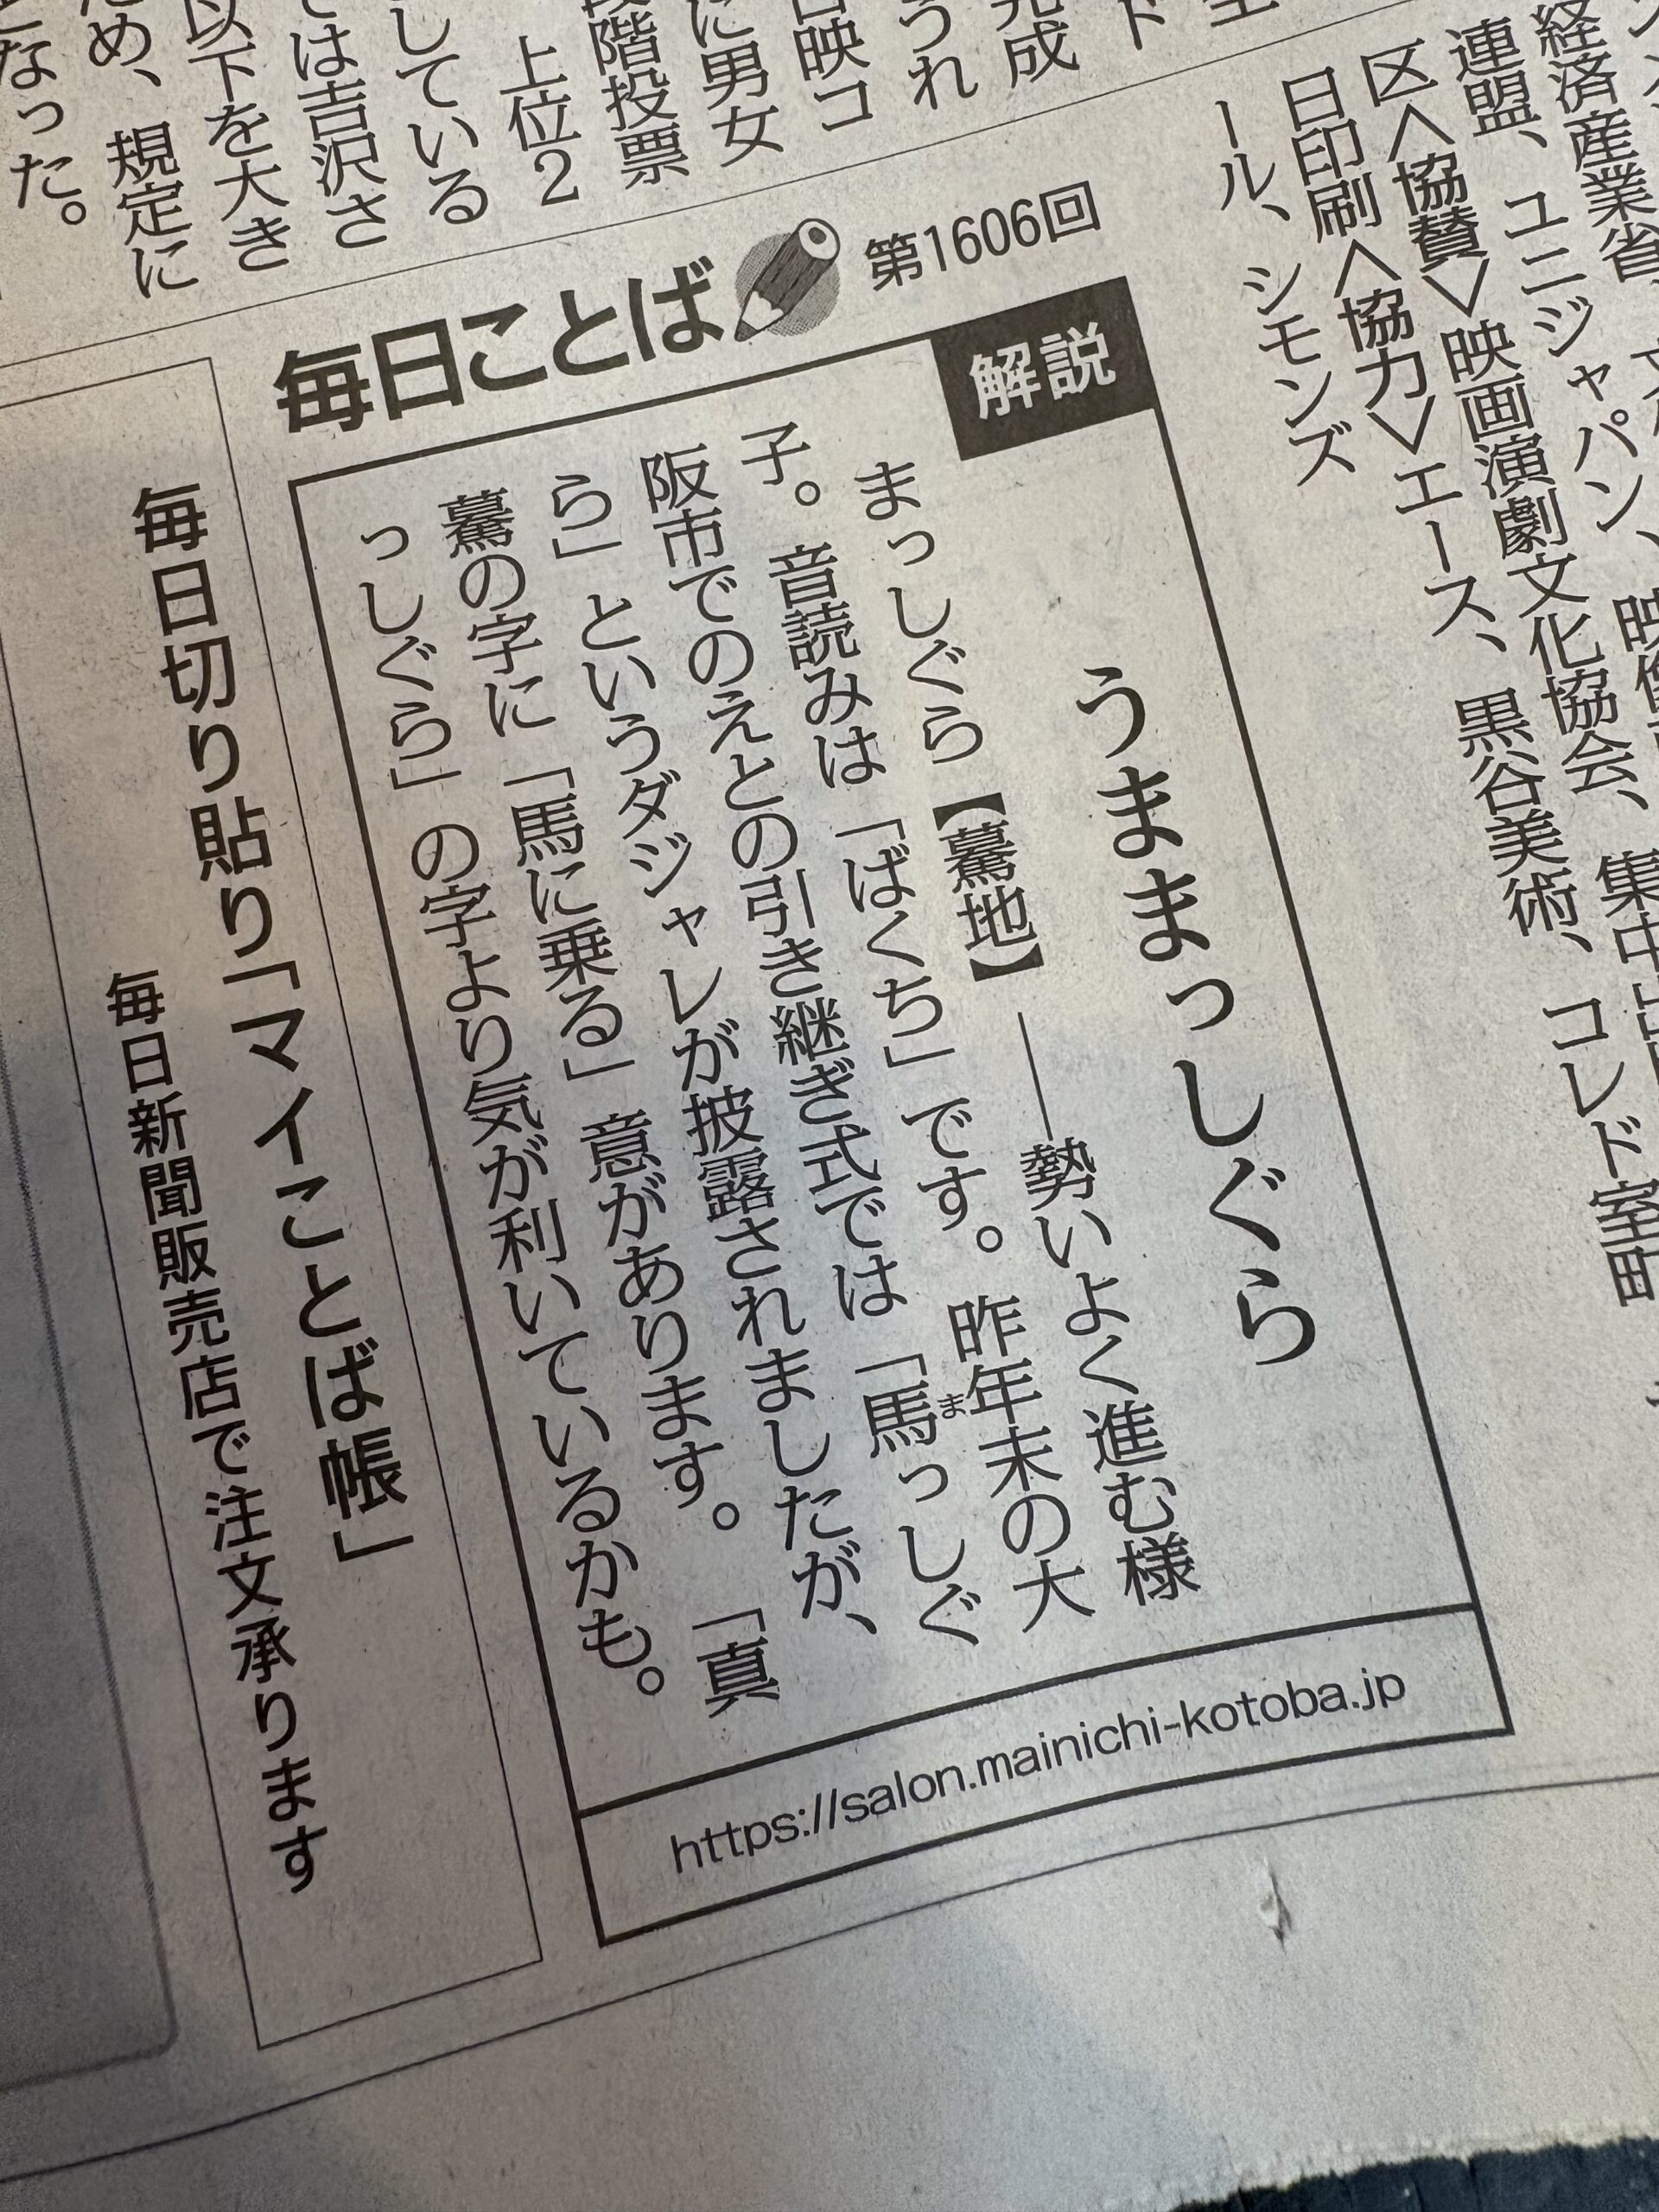 成
うれ
映コ
に男女
段階投票
上位2
している
は吉沢さ
以下を大き
め、規定に
なった。
経済産業省、
連盟、ユニジャパン、
区〈協賛〉映画演劇文化協会、
日印刷〈協力〉エース、黒谷美術、コレド室町
ール、シモンズ
毎日ことば
第1606回
解説
うままっしぐら
まっしぐら【驀地】――勢いよく進む様
子。音読みは「ばくち」です。昨年末の大
阪市でのえとの引き継ぎ式では「馬っしぐ
ま
ら」というダジャレが披露されましたが、
驀の字に「馬に乗る」意があります。「真
っしぐら」の字より気が利いているかも。
https://salon.mainichi-kotoba.jp
毎日切り貼り「マイことば帳」
毎日新聞販売店で注文承ります